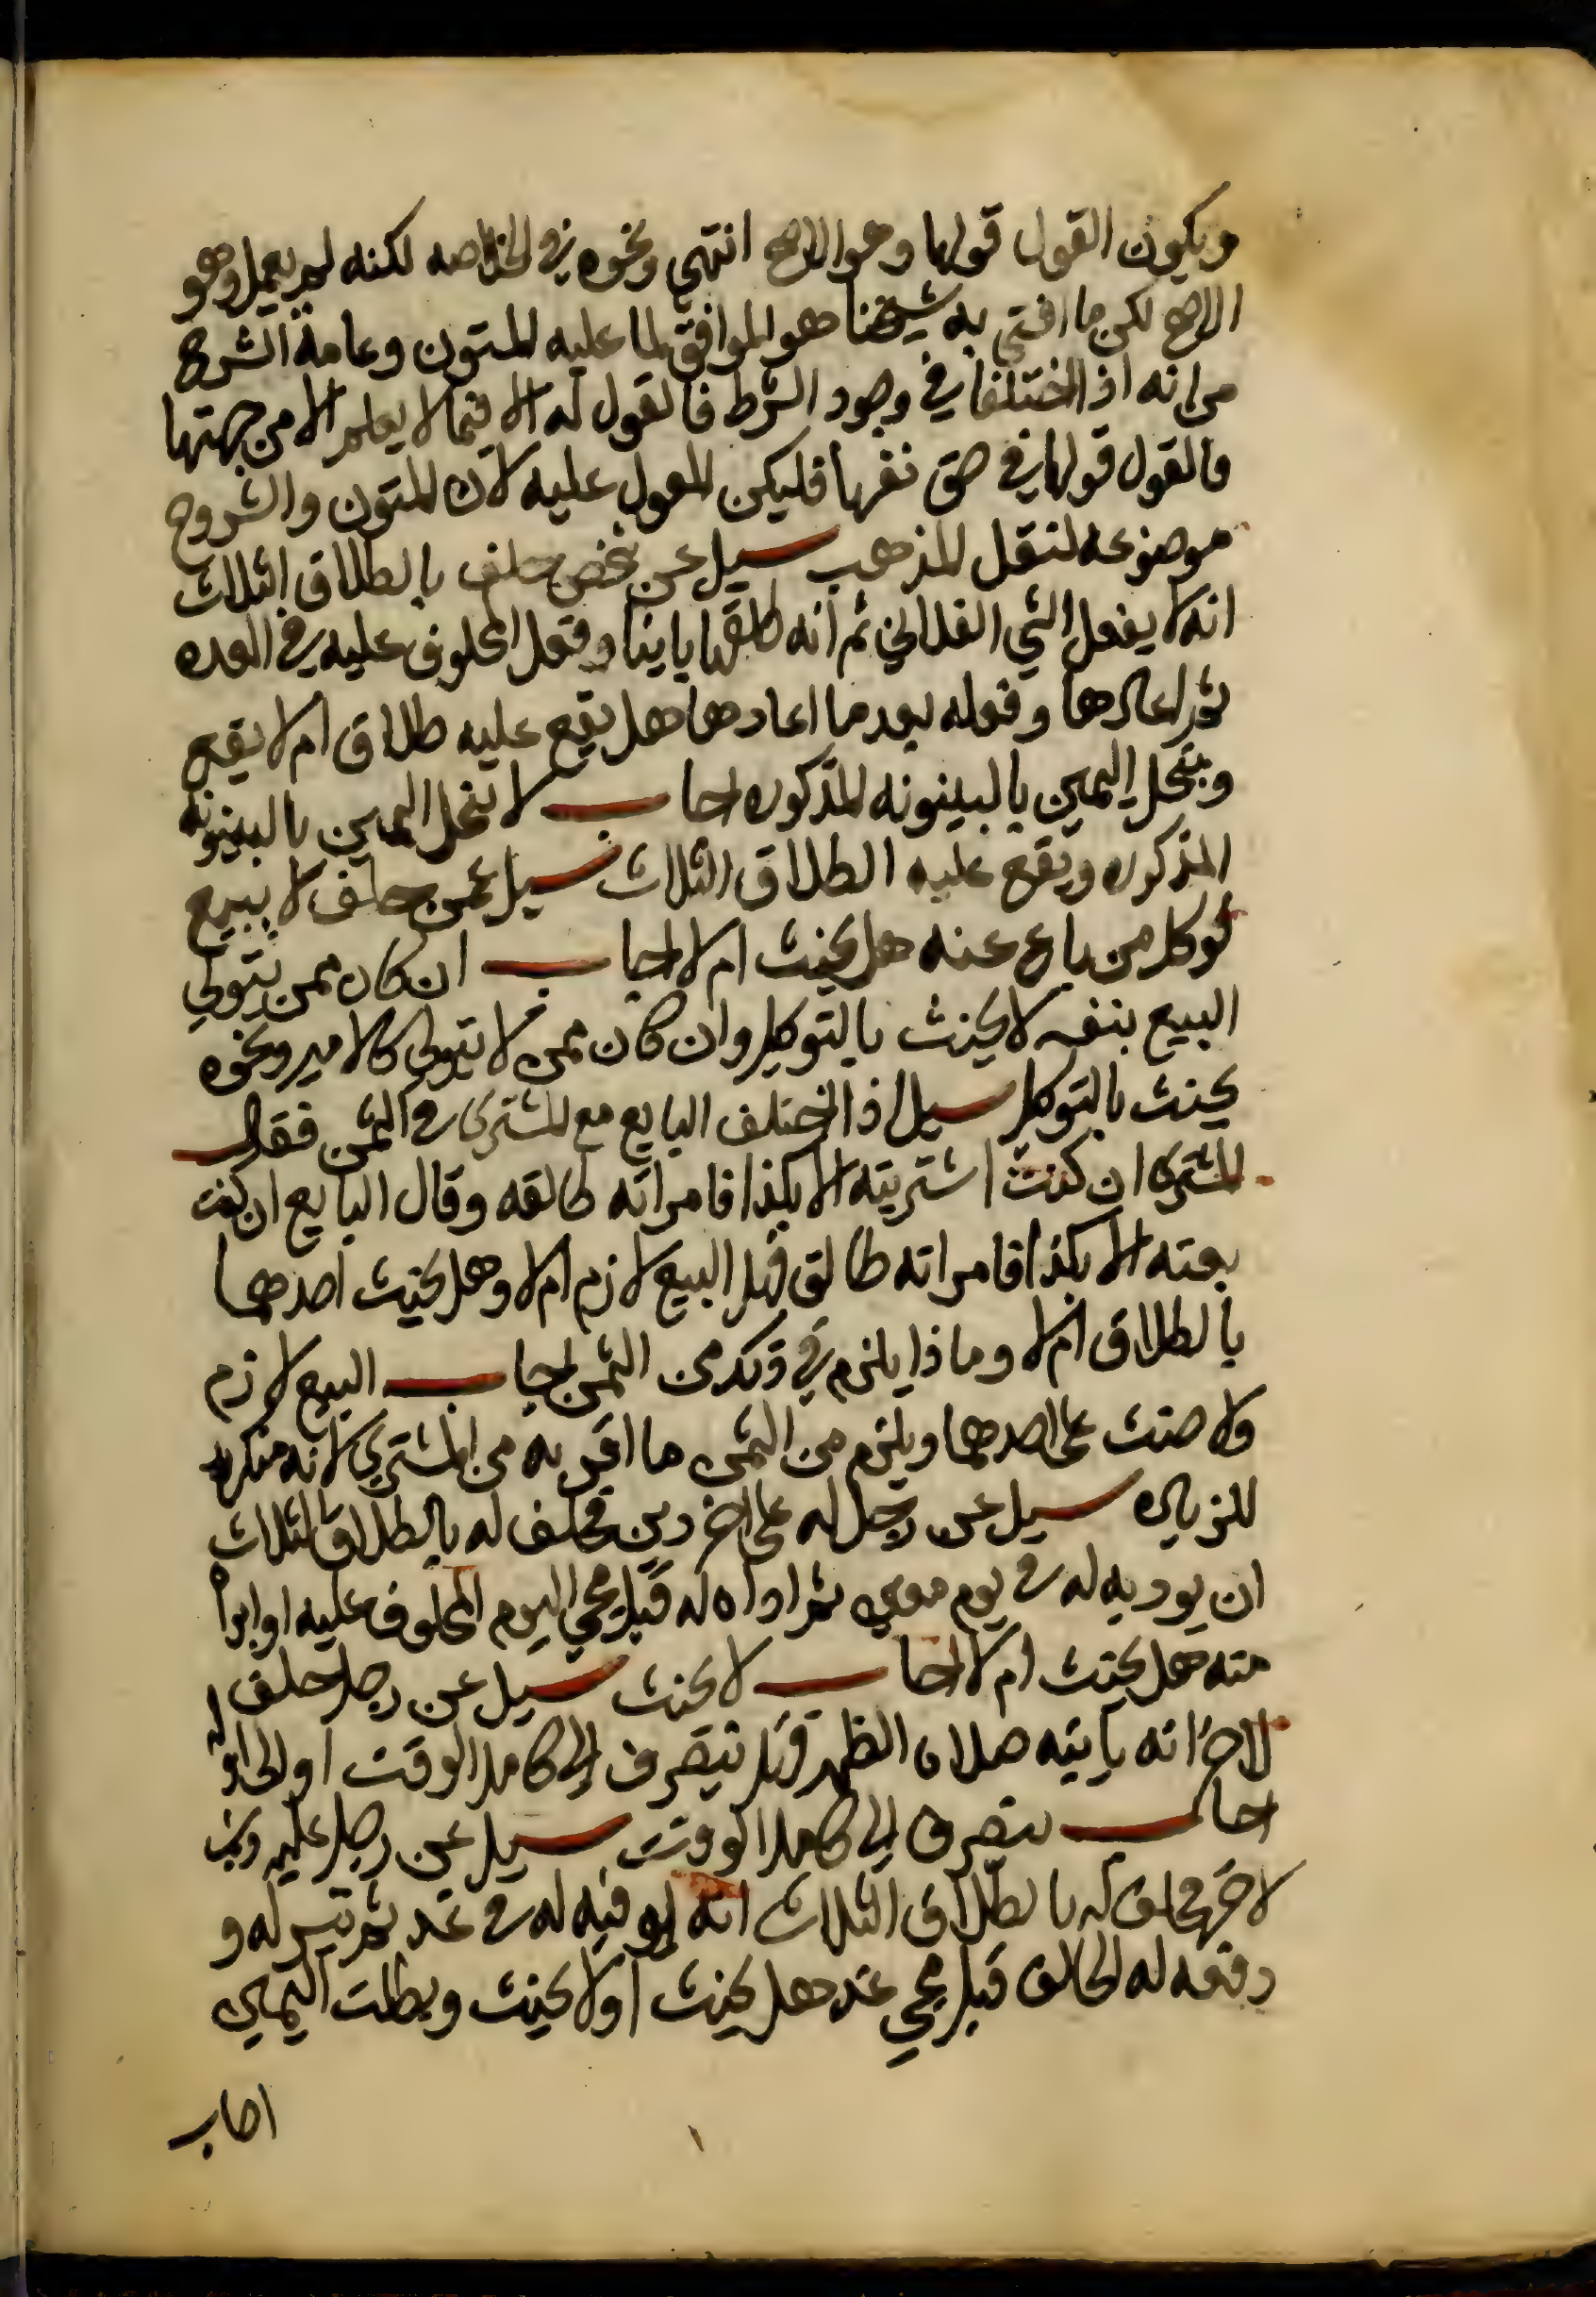 ويكون القول قولها وهو الاصح انتهي ونحوه في الخلاصه لكنه لم يعمل وهو
الاصح لكن ما افتي به شيخنا هو الموافق لما عليه المتون وعامة الشروح
من انه اذا اختلفا في وجود الشرط فالقول له الا فيما لا يعلم الا من جهتها
فالقول قولها في حق نفسها فليكن المعول عليه لان المتون والشروح
موضوعه لنقل المذهب سيل عن شخص حلف بالطلاق الثلاث
انه لا يفعل الشي الفلاني ثم انه طلقها باينا وفعل المحلوف عليه في العده
ثم اعادها وفعله بعد ما اعادها هل يقع عليه طلاق ام لا يقع
وينحل اليمين بالبينونه المذكوره اجاب لا ينحل اليمين بالبينونه
المذكوره ويقع عليه الطلاق الثلاث سيل عمن حلف لا يبيع
فوكل من باع عنه هل يحنث ام لا اجاب ان كان ممن يتولي
البيع بنفسه لا يحنث بالتوكيل وان كان ممن لا يتولى كالامير ونحوه
يحنث بالتوكل سيل اذا اختلف البايع مع المشتري في الثمن فقال
المشتري ان كنت اشتريته الا بكذا فامراته طالقه وقال البايع ان كنت
بعته الا بكذا فامراته طالق فهل البيع لازم ام لا وهل يحنث احدهما
بالطلاق ام لا وماذا يلزم في ذلك من الثمن اجاب البيع لازم
ولا حنث على احدهما ويلزم من الثمن ما اقر به من المشتري لانه منكر
للزياده سيل عن رجل له على اخر دين فحلف له بالطلاق الثلاث
ان يوديه له في يوم معين ثم اداه له قبل مجي اليوم المحلوف عليه او ابراه
منه هل يحنث ام لا اجاب لا يحنث سيل عن رجل حلف
لاخر انه ياتيه صلاة الظهر فهل ينصرف الى كامل الوقت او الى اوله
اجاب ينصرف الى كامل الوقت سيل عن رجل عليه دين
لاخر فحلف له بالطلاق الثلاث انه يوفيه له في غد ثم تيسر له و
دفعه له الحالف قبل مجي غد هل يحنث او لا يحنث وبطلت اليمين
اجاب